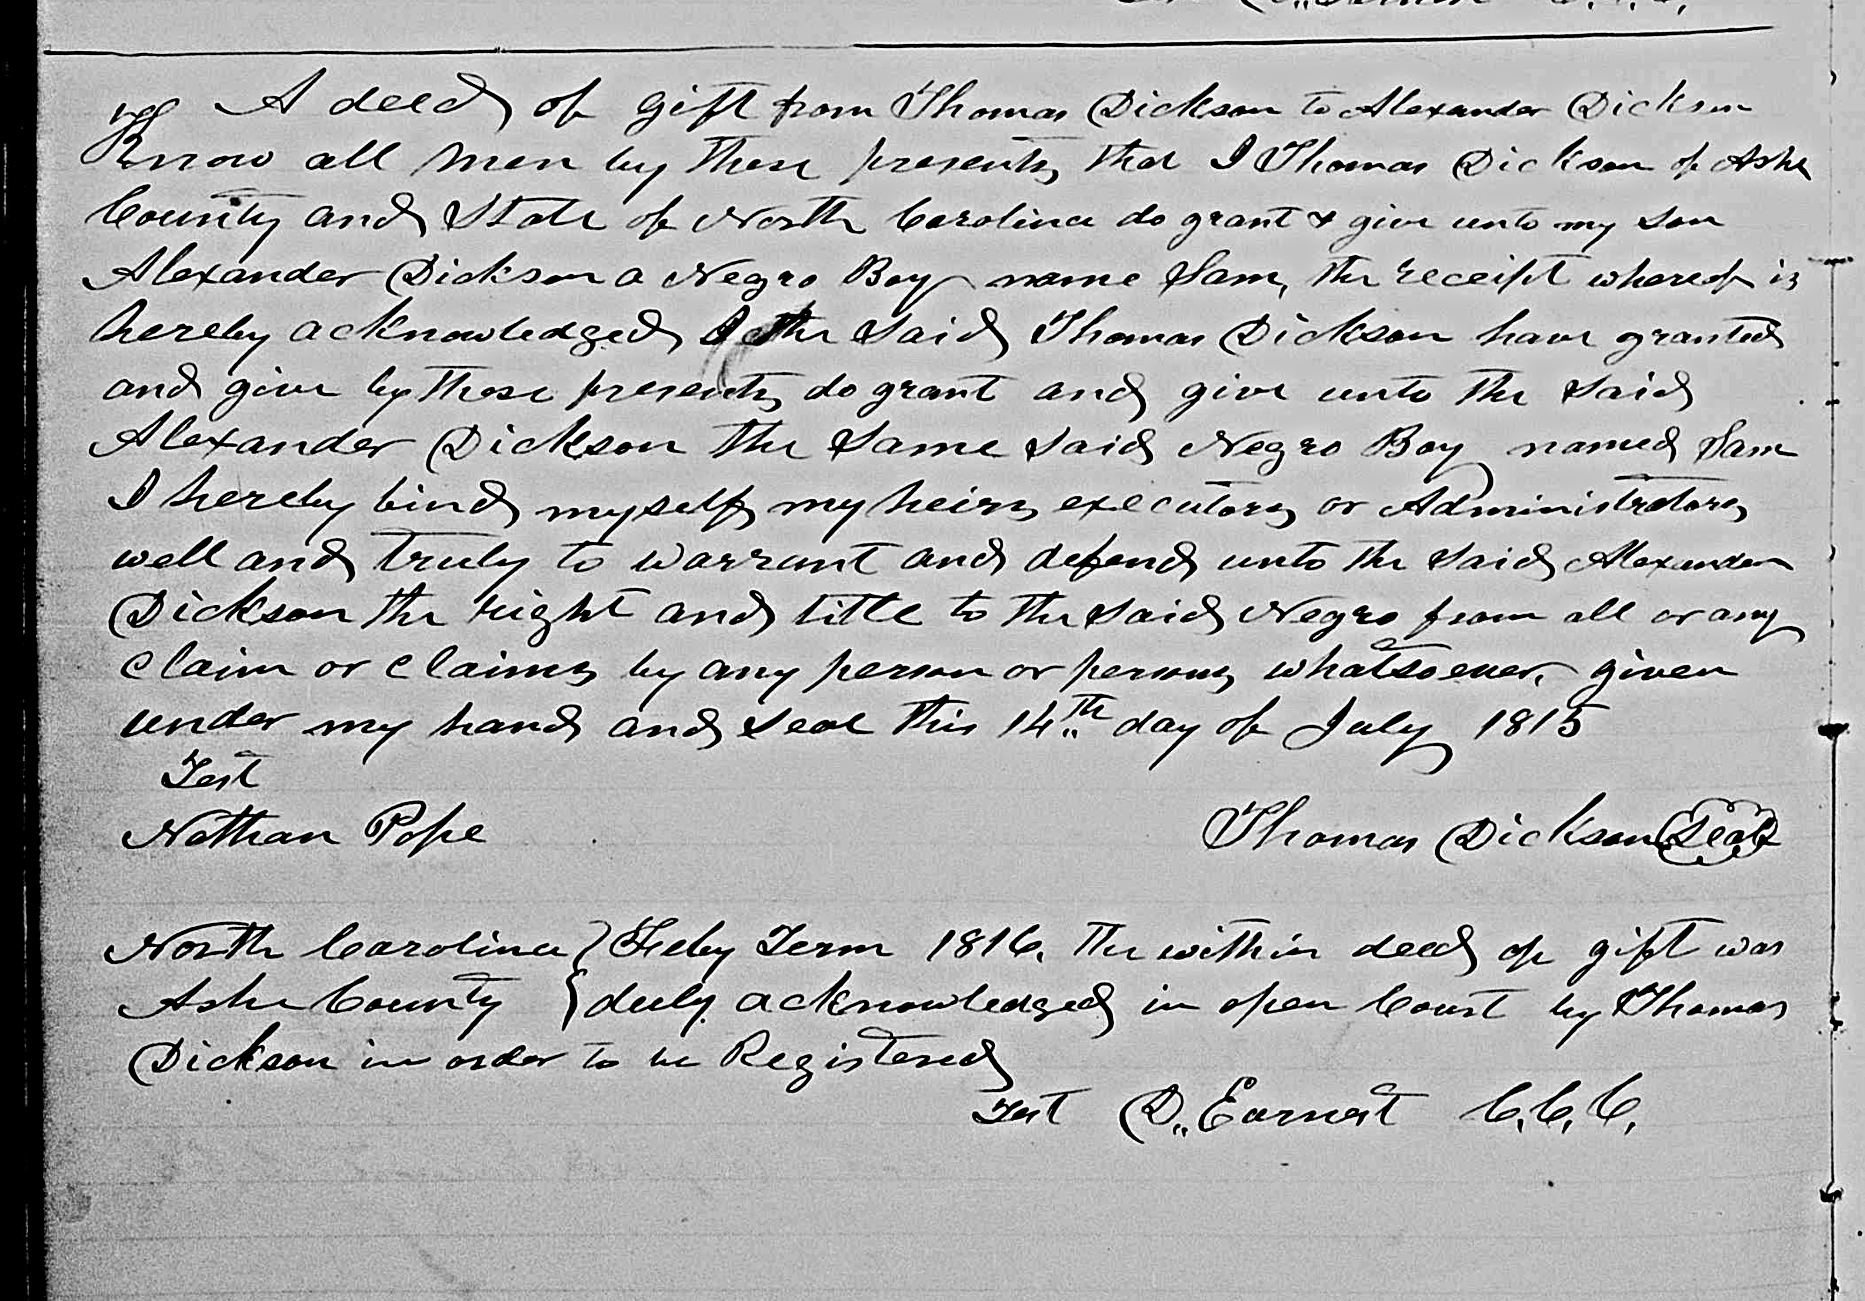 A deed of gift from Thomas Dickson to Alexander Dickson
Know all men by these presents that I Thomas Dickson of Ashe
County and State of North Carolina do grant & give unto my son
Alexander Dickson a Negro Boy name Sam, the receipt whereof is
hereby acknowledged I the said Thomas Dickson have granted
and give by these presents do grant and give unto the said
Alexander Dickson the same said Negro Boy named Sam
I hereby bind myself my heirs executors or Administrators
well and truly to warrant and defend unto the said Alexander
Dickson the right and title to the said Negro from all or any
claim or claims by any person or persons whatsoever, given
under my hand and seal this 14th day of July 1815
Test
Nathan Pope
Thomas Dickson Seal
North Carolina } Feby Term 1816. The within deed of gift was
Ashe County } duly acknowledged in open Court by Thomas
Dickson in order to be Registered
Test D. Earnest C.C.C.